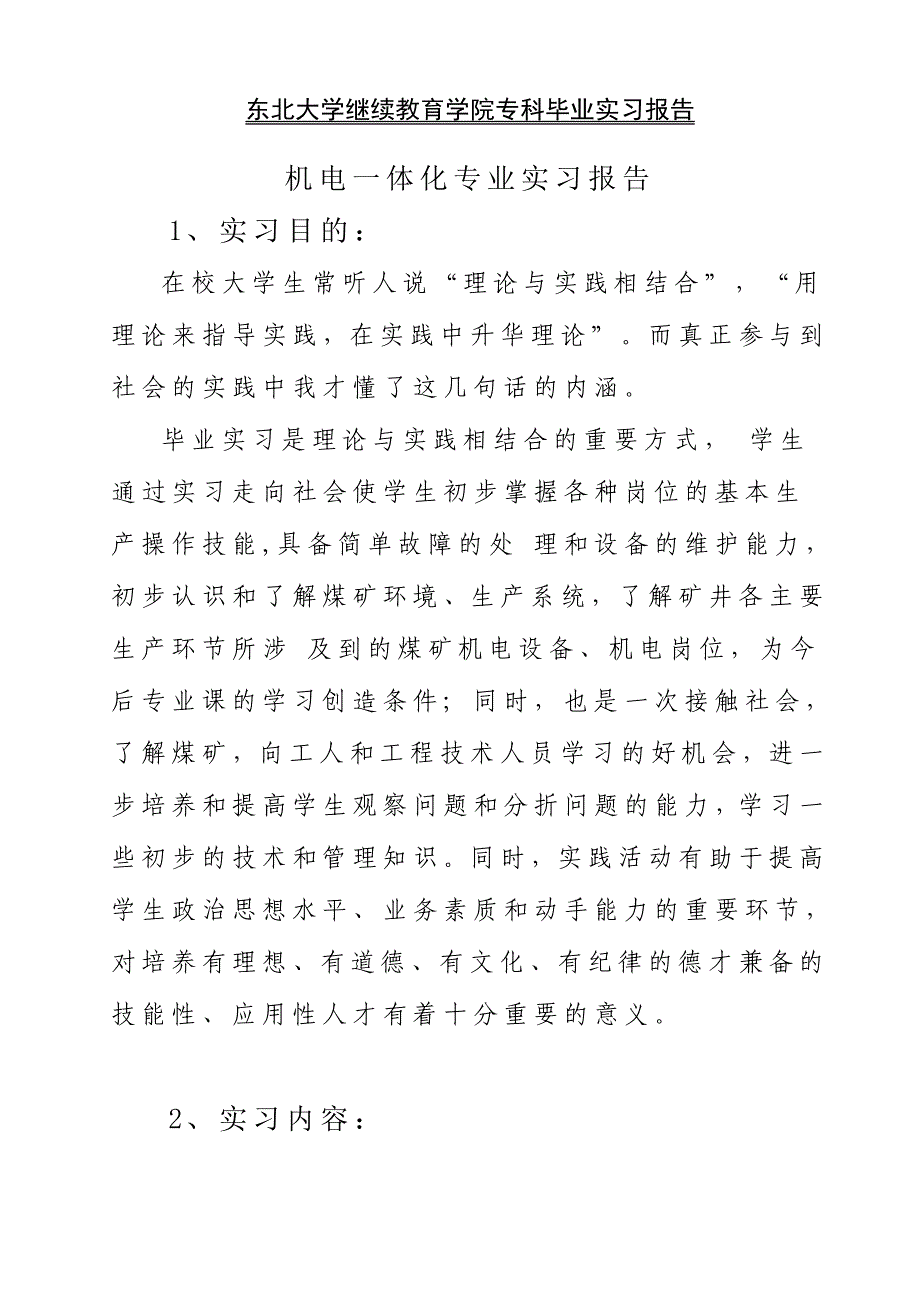 东北大学继续教育学院专科毕业实习报告
机电一体化专业实习报告
1、实习目的：
在校大学生常听人说“理论与实践相结合”，“用
理论来指导实践，在实践中升华理论”。而真正参与到
社会的实践中我才懂了这几句话的内涵。
毕业实习是理论与实践相结合的重要方式， 学生
通过实习走向社会使学生初步掌握各种岗位的基本生
产操作技能,具备简单故障的处 理和设备的维护能力，
初步认识和了解煤矿环境、生产系统，了解矿井各主要
生产环节所涉 及到的煤矿机电设备、机电岗位，为今
后专业课的学习创造条件；同时，也是一次接触社会，
了解煤矿，向工人和工程技术人员学习的好机会，进一
步培养和提高学生观察问题和分折问题的能力，学习一
些初步的技术和管理知识。同时，实践活动有助于提高
学生政治思想水平、业务素质和动手能力的重要环节，
对培养有理想、有道德、有文化、有纪律的德才兼备的
技能性、应用性人才有着十分重要的意义。
2、实习内容：